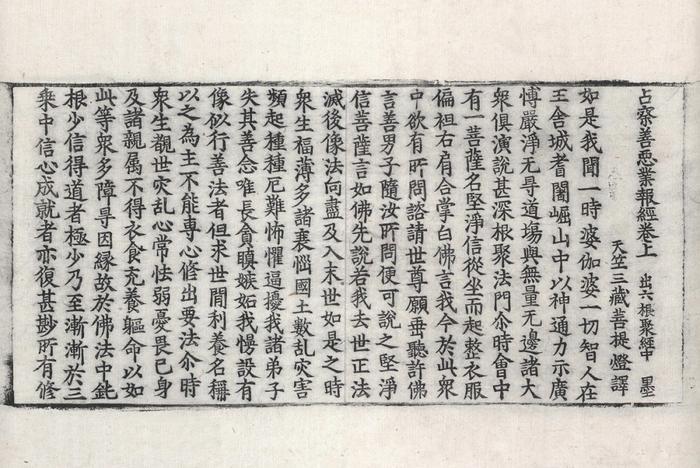 占察善惡業報經卷上 出六根聚經中 墨
天竺三藏菩提燈譯
如是我聞一時婆伽婆一切智人在
王舍城耆闍崛山中以神通力示廣
愽嚴淨无㝵道場與無量无邊諸大
衆俱演說甚深根聚法門尒時會中
有一菩薩名堅淨信從坐而起整衣服
偏袒右肩合掌白佛言我今於此衆
中欲有所問諮請世尊願垂聽許佛
言善男子隨汝所問便可說之堅淨
信菩薩言如佛先說若我去世正法
滅後像法向盡及入末世如是之時
衆生福薄多諸衰惱國土數亂灾害
頻起種種厄難怖懼逼擾我諸弟子
失其善念唯長貪瞋嫉妬我慢設有
像似行善法者但求世閒利養名稱
以之為主不能專心修出要法尒時
衆生覩世灾亂心常怯弱憂畏己身
及諸親屬不得衣食充養軀命以如
此等衆多障㝵因緣故於佛法中鈍
根少信得道者極少乃至漸漸於三
乘中信心成就者亦復甚尠所有修